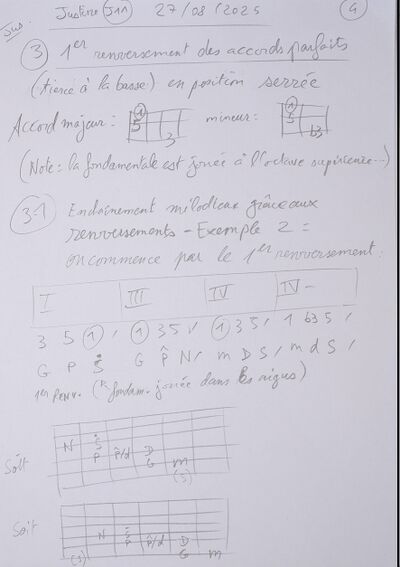 Jus.
Justine J11 27/08/2025 4
3 1er renversement des accords parfaits
(tierce à la basse) en position serrée
Accord majeur : 1 5 3 mineur : 1 5 b3
(Note : la fondamentale est jouée à l'octave supérieure...)
3-1 Enchaînement mélodieux grâce aux
renversements - Exemple 2 =
on commence par le 1er renversement :
I III IV IV-
3 5 1 / 1 3 5 / 1 3 5 / 1 b3 5 /
G P S G P N / m D S / m d S /
1er Renv. (fondam. jouée dans les aigus)
Soit
N S P P/d D G m (S)
Soit
(S) N S P P/d D G m